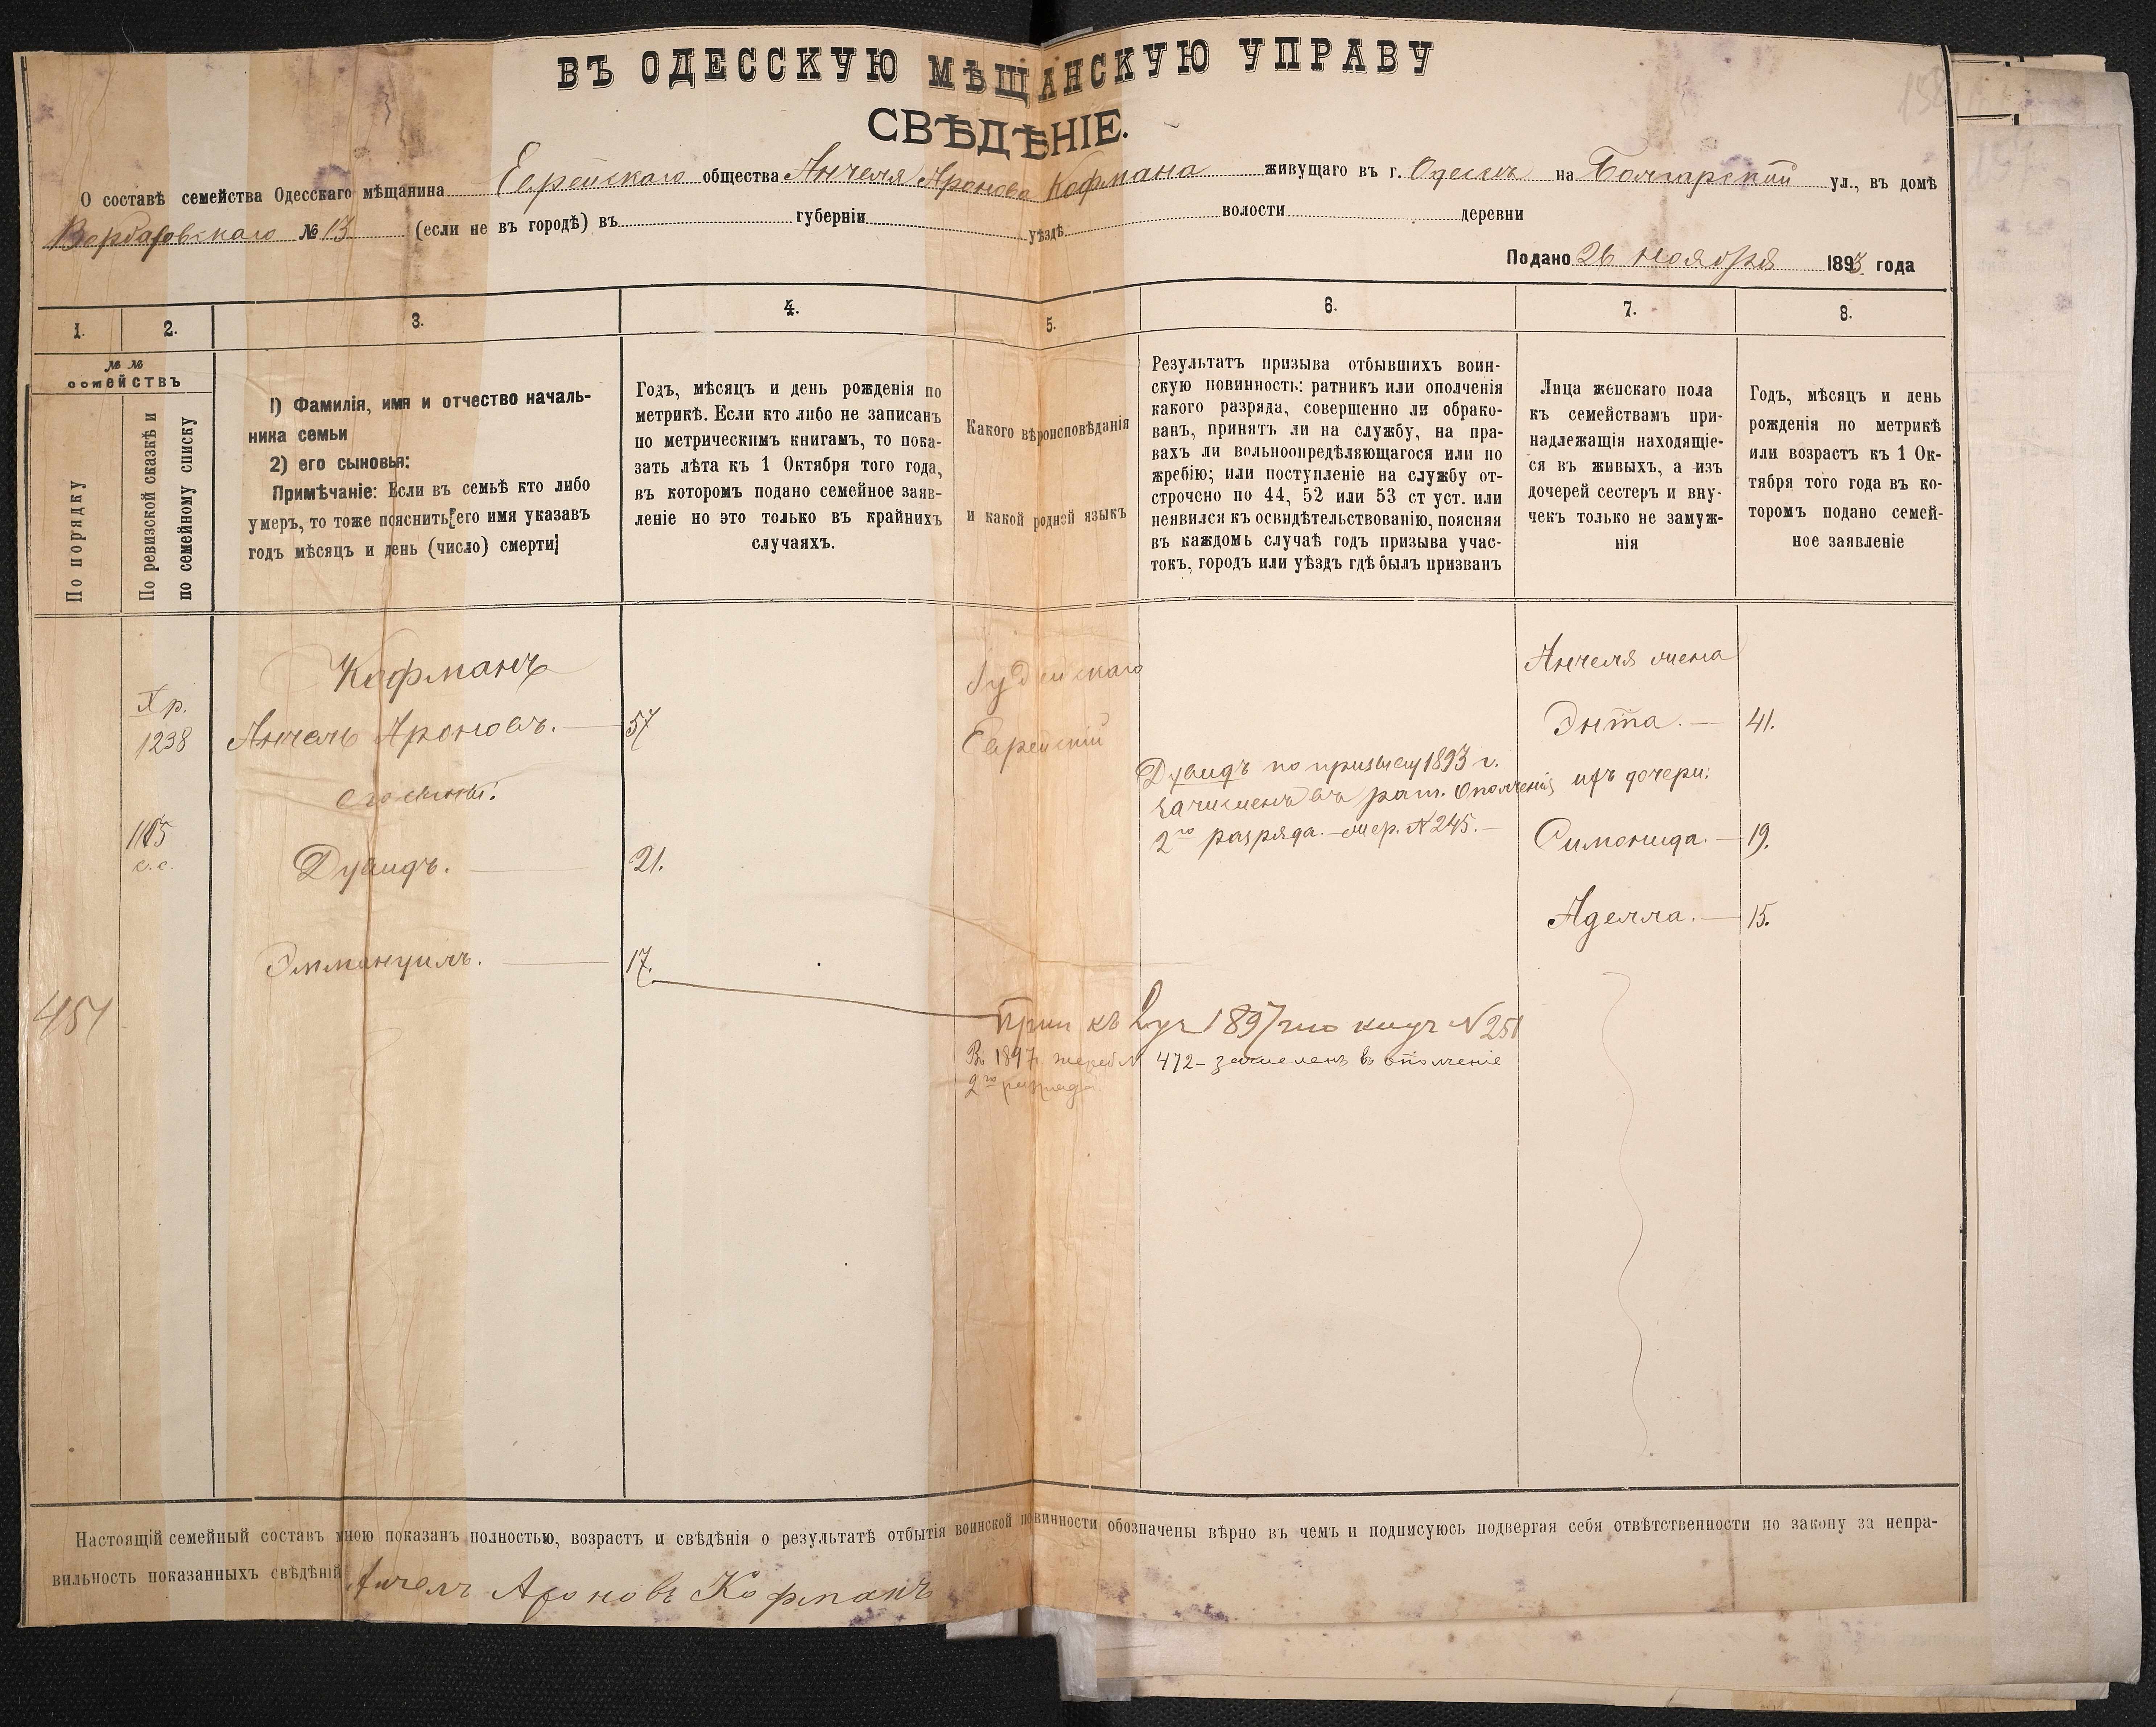 ВЪ ОДЕССКУЮ МѢЩАНСКУЮ УПРАВУ
СВѢДѢНІЕ.
О составѣ семейства Одесскаго мѣщанина Еврейскаго общества Анчеля Аронова Кофмана живущаго въ г. Одессѣ на Болгарской ул., въ домѣ
№ 13 (если не въ городѣ) въ губерніи уѣздѣ волости деревни
Подано 26 ноября 1893 года
1. 2. 3. 4. 5. 6. 7. 8.
№ №
семействъ
По порядку
По ревизской сказкѣ и
по семейному списку
1) Фамилія, имя и отчество началь-
ника семьи
2) его сыновья:
Примѣчаніе: Если въ семьѣ кто либо
умеръ, то тоже пояснить его имя указавъ
годъ мѣсяцъ и день (число) смерти
Годъ, мѣсяцъ и день рожденія по
метрикѣ. Если кто либо не записанъ
по метрическимъ книгамъ, то пока-
зать лѣта къ 1 Октября того года,
въ которомъ подано семейное заяв-
леніе но это только въ крайнихъ
случаяхъ.
Какого вѣроисповѣданія
и какой родной языкъ
Результатъ призыва отбывшихъ воин-
скую повинность: ратникъ или ополченія
какого разряда, совершенно ли обрако-
ванъ, принятъ ли на службу, на пра-
вахъ ли вольноопредѣляющагося или по
жребію; или поступленіе на службу от-
строчено по 44, 52 или 53 ст уст. или
неявился къ освидѣтельствованію, поясняя
въ каждомъ случаѣ годъ призыва учас-
токъ, городъ или уѣздъ гдѣ былъ призванъ
Лица женскаго пола
къ семействамъ при-
надлежащія находящіе-
ся въ живыхъ, а изъ
дочерей сестеръ и вну-
чекъ только не замуж-
нія
Годъ, мѣсяцъ и день
рожденія по метрикѣ
или возрастъ къ 1 Ок-
тября того года въ ко-
торомъ подано семей-
ное заявленіе
Кофманъ
Іудейскаго
Анчеля жена
Хр.
1238
Анчель Ароновъ. 57
Еврейскій
Энта. 41.
его сыновья:
Дувидъ по призыву 1893 г.
зачисленъ въ рат. ополченія
2го разряда. жер. № 245.
ихъ дочери:
1105
с. с.
Дувидъ. 21.
Симонида. 19.
Аделла. 15.
Эммануилъ. 17.
451
1897 № 251
Въ 1897 г. жереб № 472 - зачисленъ въ ополченіе
2го разряда
Настоящій семейный составъ мною показанъ полностью, возрастъ и свѣдѣнія о результатѣ отбытія воинской повинности обозначены вѣрно въ чемъ и подписуюсь подвергая себя отвѣтственности по закону за непра-
вильность показанныхъ свѣдѣній Анчелъ Ароновъ Кофманъ